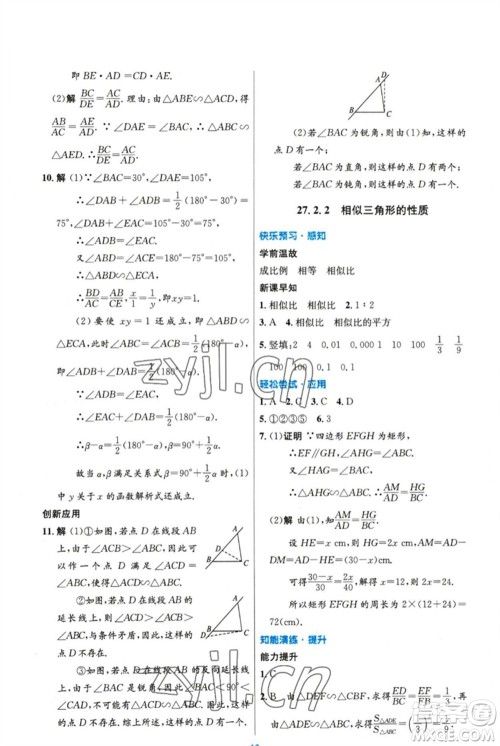 即 BE·AD=CD·AE.
(2)解 BC/DE=AC/AD. 理由:由△ABE∽△ACD,得
AB/AC=AE/AD. ∵∠DAE=∠BAC,∴△ABC∽
△AED. ∴BC/DE=AC/AD.
10. 解 (1)∵∠BAC=30°,∠DAE=105°,
∴∠DAB+∠EAC=105°-30°=75°.
∵∠DAB+∠D=1/2(180°-30°)=
75°,∴∠D=∠EAC.
又∵∠DAB=∠E,∴△DAB∽△AEC.
∴DB/AC=AB/CE,即x/1=1/y,∴xy=1.
(2)要使 xy=1 还成立,△DAB∽△
ECA,此时∠BAC+∠DAB+∠CAE=β,
∴∠DAB+∠CAE=β-α.
又∵∠DAB+∠ADB=1/2(180°-α),
∵∠ADB=∠EAC,
∴∠DAB+∠CAE=1/2(180°-α).
∴β-α=1/2(180°-α),即β=90°+1/2α.
故当α,β满足关系式β=90°+1/2α
时,y关于x的函数解析式还成立.
创新应用
11. 解 (1)①如图,若点D在线段AB
上,由于∠ACB>∠ABC,因此可
以作一个点D满足∠ACD=
∠ABC,使得△ACD∽△ABC;
②如图,若点D在线段AB的
延长线上,则∠ACD>∠ACB>
∠ABC,与条件矛盾,因此,这样的
点D不存在;
③如图,若点D在线段AB的
反向延长线上,由于∠BAC是锐
角,则∠BAC<90°<∠CAD,不可
能有△ACD∽△ABC,因此,这样
的点D不存在.综上所述,这样的点D有一个.
A
B C
(2)若∠BAC为锐角,由(1)知,这样的
点D有一个;
若∠BAC为直角,这样的点D有两个;
若∠BAC为钝角,这样的点D有一个.
27.2.2 相似三角形的性质
快乐预习·感知
学前温故
成比例 相等 相似比
新课早知
1. 相似比 相似比 2. 1∶2
3. A 4. 相似比 相似比的平方
5. 竖填: 2 4 0.1 0.01 1/3 1/9
100 100 0.01 0.000 1
轻松尝试·应用
1. A 2. C 3. C 4. D
5. ①②③⑤ 6. 3
7. (1)证明 ∵四边形EFGH为矩形,
∴EF∥GH.∴△AHG∽△ABC.
又∠AHG=∠ABC,∴AM/AD=HG/BC.
(2)解 由(1)得 AM/AD=HG/BC.
设 HE=x cm,则 HG=2x cm,AM=AD-
DM=AD-HE=(30-x)cm.
可得(30-x)/30=2x/40,解得x=12,2x=24.
所以矩形EFGH的周长为2×(12+24)=
72(cm).
知能演练·提升
能力提升
1. C
2. B 由△DEF∽△CBF,求得ED/BC=EF/FB=1/3,
∴S△DEF/S△CBF=(1/3)²=1/9.
zyjl.cn